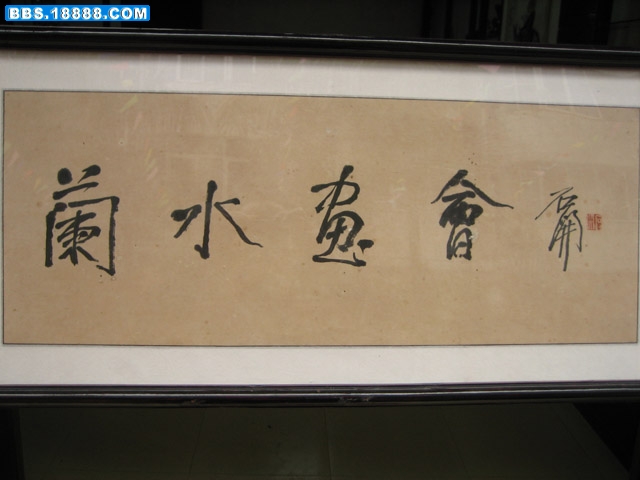 BBS.18888.COM
蘭水畫會 石開